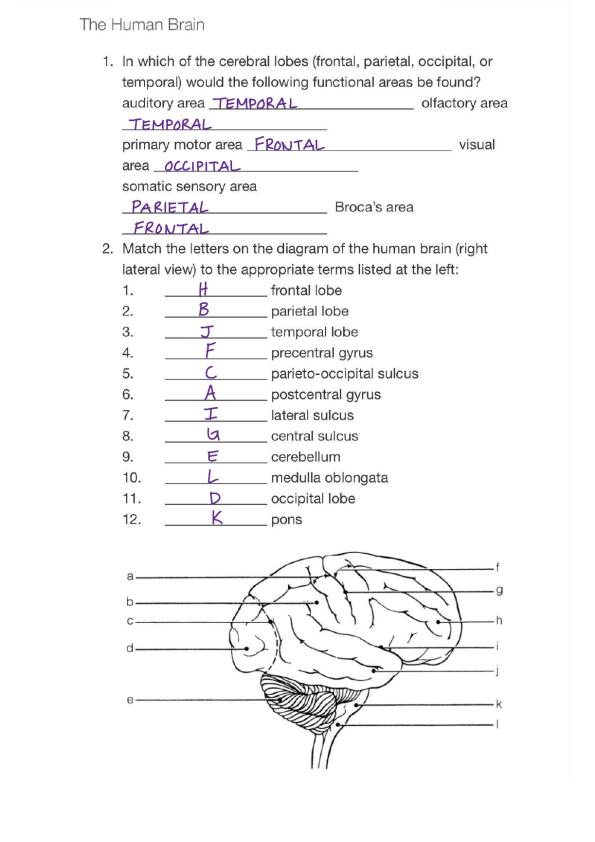 The Human Brain
1. In which of the cerebral lobes (frontal, parietal, occipital, or
temporal) would the following functional areas be found?
auditory area TEMPORAL olfactory area
TEMPORAL
primary motor area FRONTAL visual
area OCCIPITAL
somatic sensory area
PARIETAL Broca's area
FRONTAL
2. Match the letters on the diagram of the human brain (right
lateral view) to the appropriate terms listed at the left:
1. H frontal lobe
2. B parietal lobe
3. J temporal lobe
4. F precentral gyrus
5. C parieto-occipital sulcus
6. A postcentral gyrus
7. I lateral sulcus
8. G central sulcus
9. E cerebellum
10. L medulla oblongata
11. D occipital lobe
12. K pons
a f
g
b
c h
d i
j
e k
l